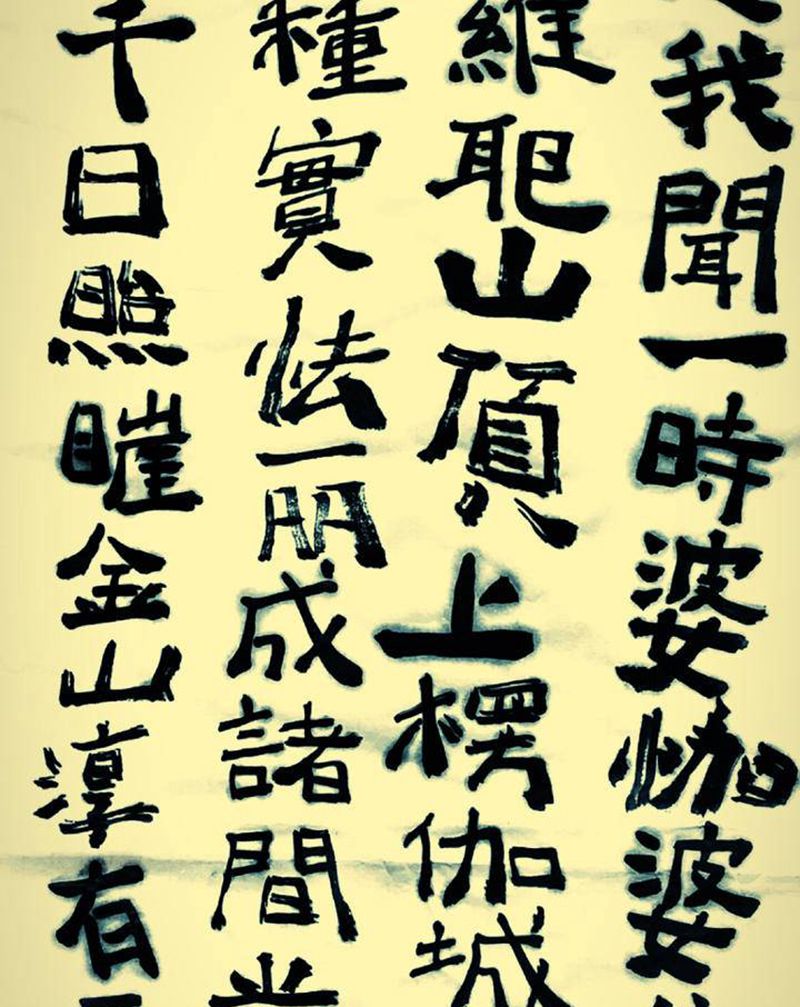 我聞一時婆伽婆
羅耶山頂上楞伽城
種實成諸間
千日照曜金山有